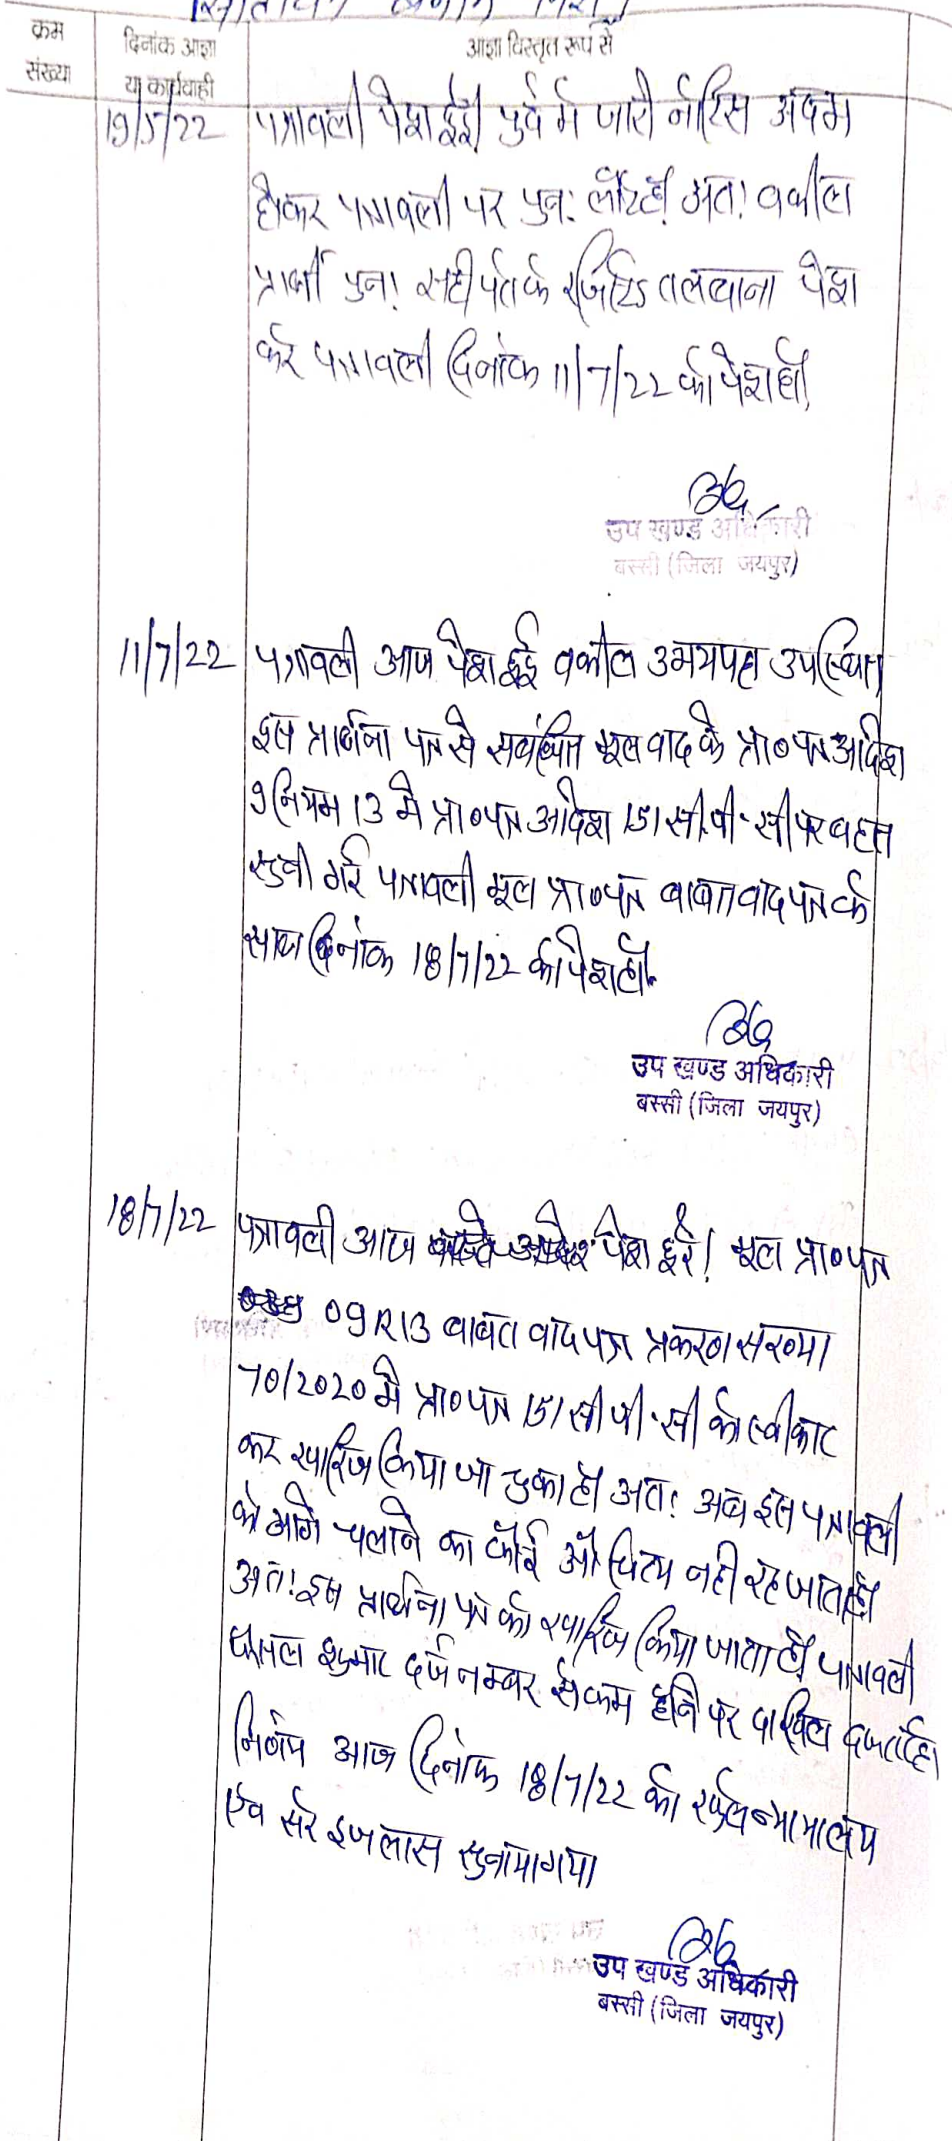 क्रम संख्या
दिनांक आज्ञा या कार्यवाही
आज्ञा विस्तृत रूप से
19/5/22
पत्रावली पेश हुई। पुर्व मे जारी नोटिस अदम
होकर पत्रावली पर पुनः लौटे है। अतः वकील
प्रार्थी पुनः सही पते के रजिस्टर्ड तलबाना पेश
करे पत्रावली दिनांक 11/7/22 को पेश हो।
उप खण्ड अधिकारी
बस्सी (जिला जयपुर)
11/7/22
पत्रावली आज पेश हुई वकील उभयपक्ष उपस्थित।
इस प्रार्थना पत्र से सबंधित मूल वाद के प्रा०पत्र आदेश
9 नियम 13 मे प्रा०पत्र आदेश 151 सी.पी.सी पर बहस
सुनी गई पत्रावली मूल प्रा०पत्र बाबत वाद पत्र के
साथ दिनांक 18/7/22 को पेश हो।
उप खण्ड अधिकारी
बस्सी (जिला जयपुर)
18/7/22
पत्रावली आज पेश हुई। मूल प्रा०पत्र
O9 R13 बाबत वाद पत्र प्रकरण संख्या
70/2020 मे प्रा०पत्र 151 सी पी.सी को स्वीकार
कर खारिज किया जा चुका है। अतः अब इस पत्रावली
को आगे चलाने का कोई औचित्य नही रह जाता है।
अतः इस प्रार्थना पत्र को खारिज किया जाता है। पत्रावली
फैसल शुमार दर्ज नम्बर से कम होने पर दाखिल दफ्तर हो।
निर्णय आज दिनांक 18/7/22 को खुले न्यायालय
एंव सरे इजलास सुनाया गया
उप खण्ड अधिकारी
बस्सी (जिला जयपुर)